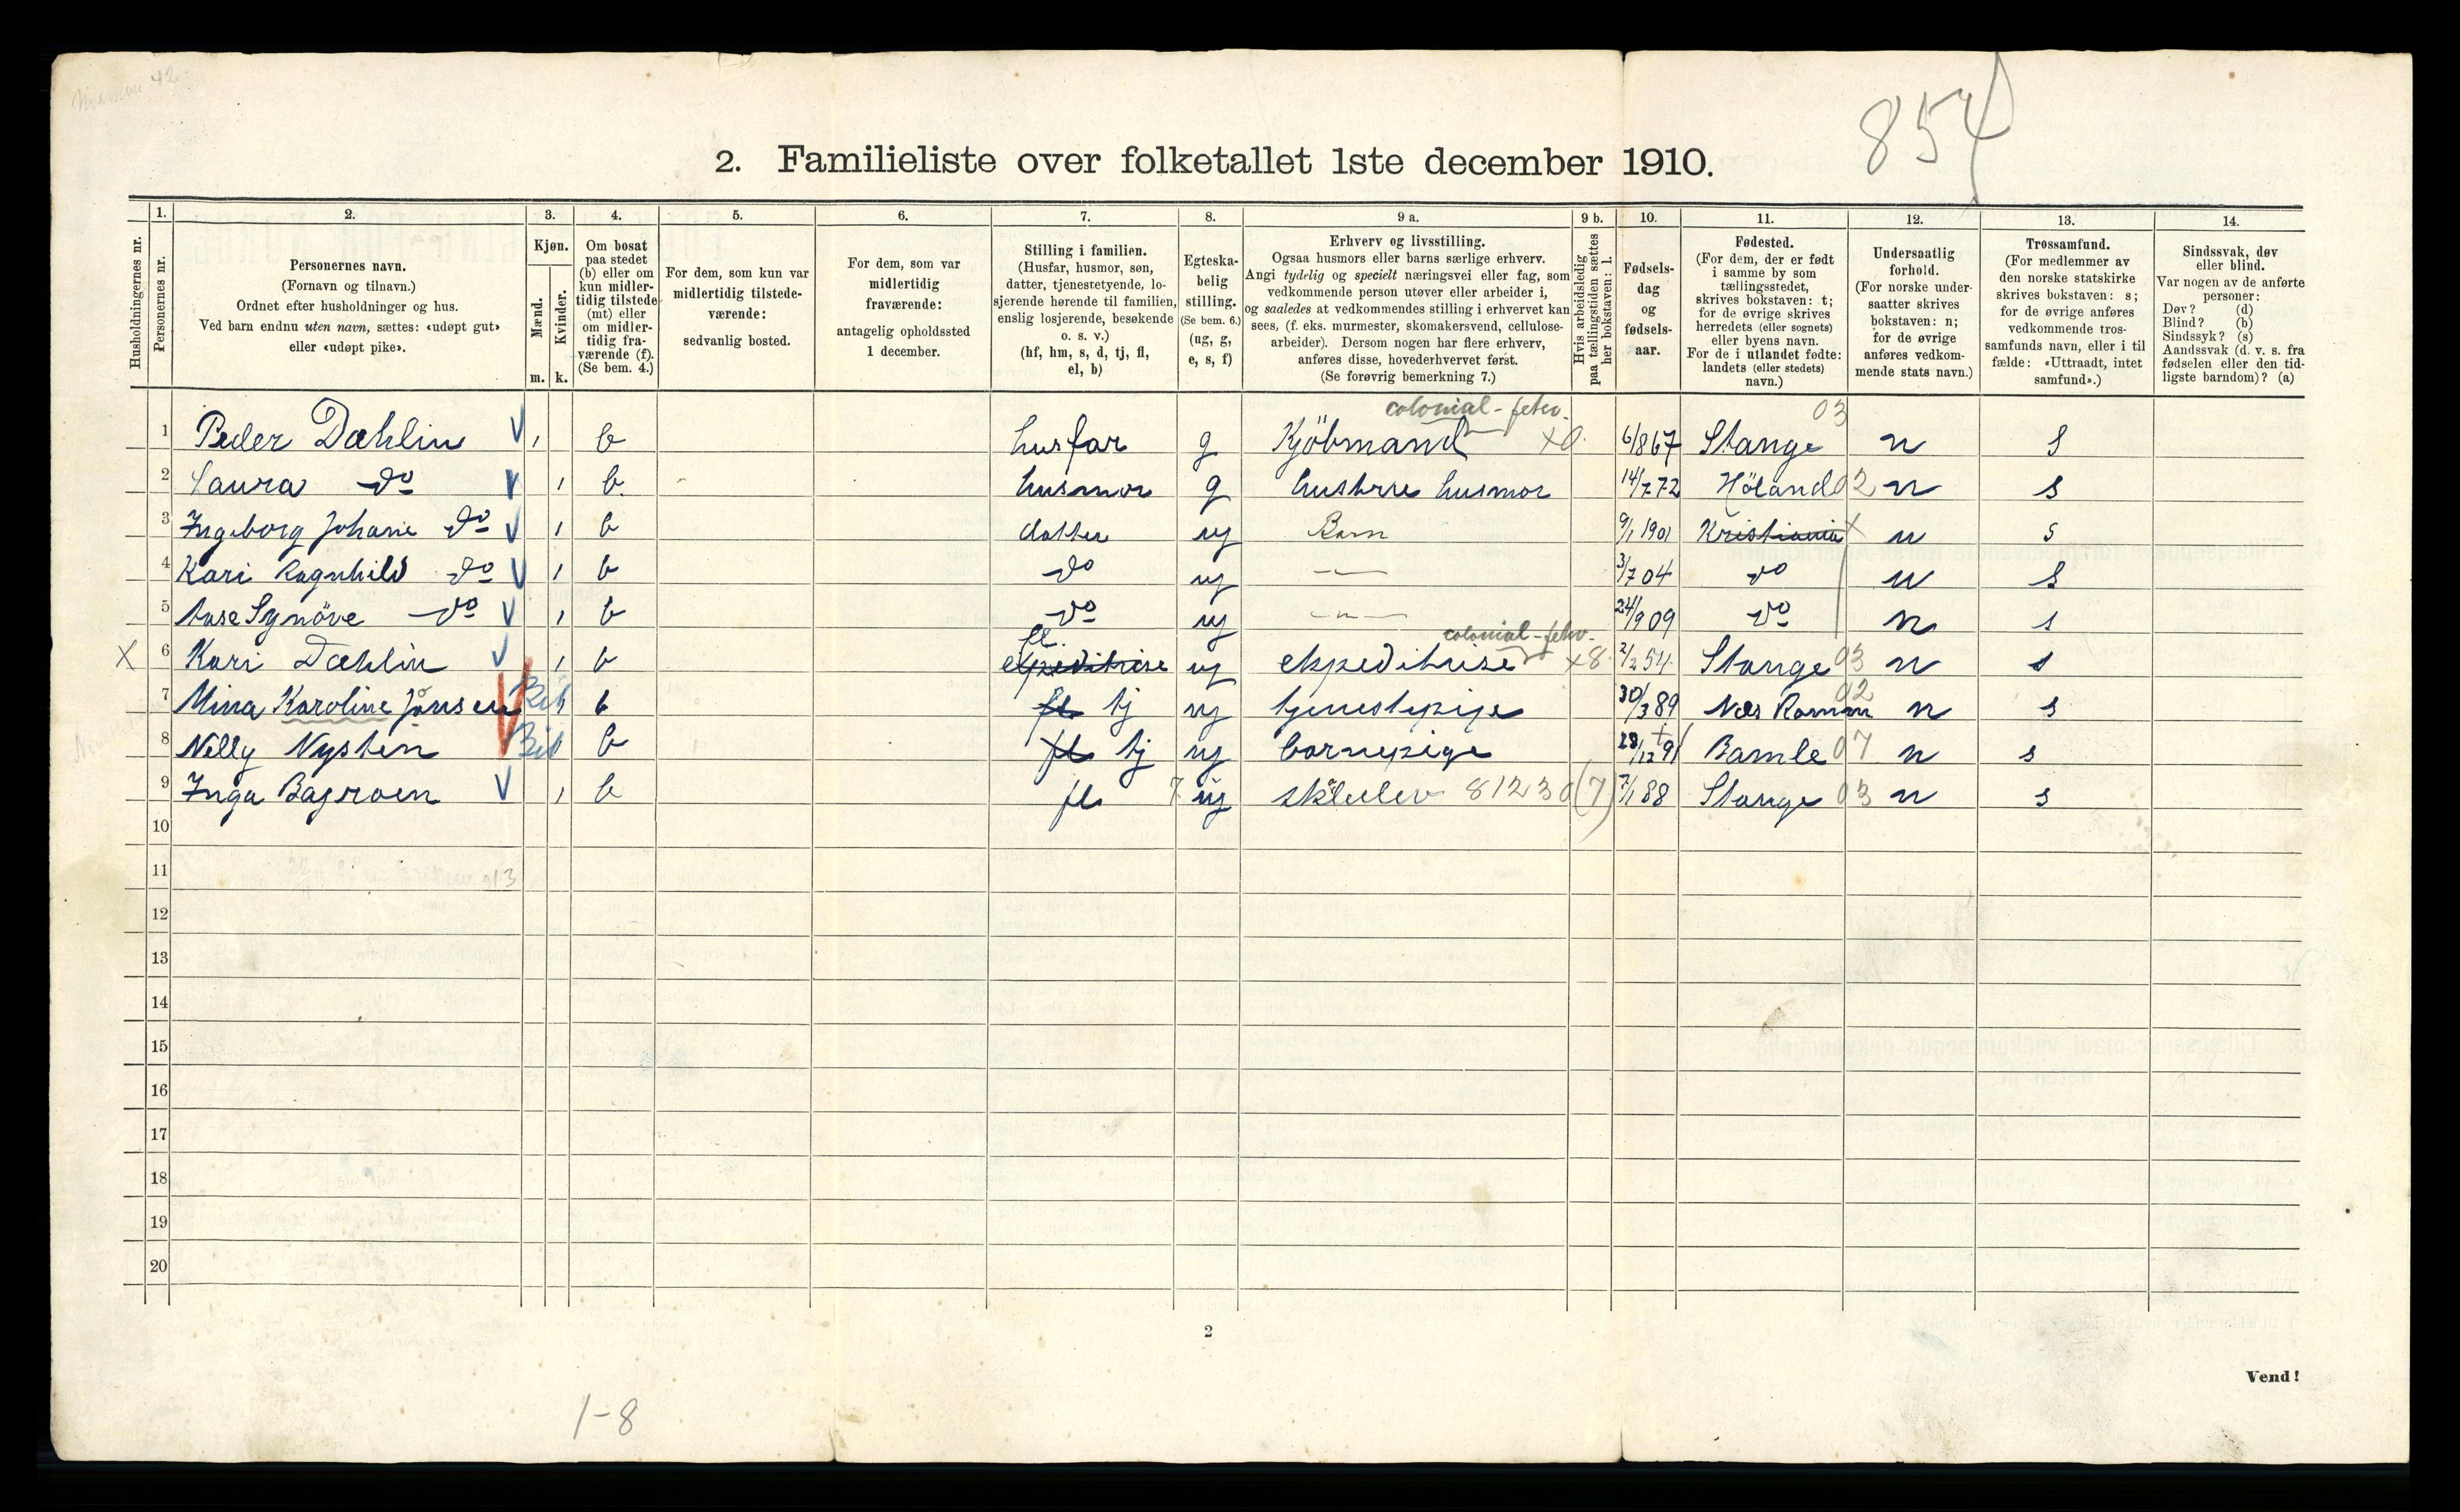 854
2. Familieliste over folketallet 1ste december 1910.
Husholdningernes nr.
1. Personernes nr.
2. Personernes navn. (Fornavn og tilnavn.) Ordnet efter husholdninger og hus. Ved barn endnu uten navn, sættes: «udøpt gut» eller «udøpt pike».
3. Kjøn. Mænd. m. Kvinder. k.
4. Om bosat paa stedet (b) eller om kun midlertidig tilstede (mt) eller om midlertidig fraværende (f). (Se bem. 4.)
5. For dem, som kun var midlertidig tilstedeværende: sedvanlig bosted.
6. For dem, som var midlertidig fraværende: antagelig opholdssted 1 december.
7. Stilling i familien. (Husfar, husmor, søn, datter, tjenestetyende, losjerende hørende til familien, enslig losjerende, besøkende o. s. v.) (hf, hm, s, d, tj, fl, el, b)
8. Egteskabelig stilling. (Se bem. 6.) (ug, g, e, s, f)
9 a. Erhverv og livsstilling. Ogsaa husmors eller barns særlige erhverv. Angi tydelig og specielt næringsvei eller fag, som vedkommende person utøver eller arbeider i, og saaledes at vedkommendes stilling i erhvervet kan sees, (f. eks. murmester, skomakersvend, cellulosearbeider). Dersom nogen har flere erhverv, anføres disse, hovederhvervet først. (Se forøvrig bemerkning 7.)
9 b. Hvis arbeidsledig paa tællingstiden sættes her bokstaven: l.
10. Fødselsdag og fødselsaar.
11. Fødested. (For dem, der er født i samme by som tællingsstedet, skrives bokstaven: t; for de øvrige skrives herredets (eller sognets) eller byens navn. For de i utlandet fødte: landets (eller stedets) navn.)
12. Undersaatlig forhold. (For norske undersaatter skrives bokstaven: n; for de øvrige anføres vedkommende stats navn.)
13. Trossamfund. (For medlemmer av den norske statskirke skrives bokstaven: s; for de øvrige anføres vedkommende trossamfunds navn, eller i tilfælde: «Uttraadt, intet samfund».)
14. Sindssvak, døv eller blind. Var nogen av de anførte personer: Døv? (d) Blind? (b) Sindssyk? (s) Aandssvak (d. v. s. fra fødselen eller den tidligste barndom)? (a)
colonial-fetv. 03
1 Peder Dæhlin 1 b husfar g Kjöbmand x0. 6/8 67 Stange n s
2 Laura do 1 b. husmor g hustrue husmor 14/7 72 Höland 02 n s
3 Ingeborg Johane do 1 b datter ug Barn 9/1 1901 Kristiania x n s
4 Kari Ragnhild do 1 b do ug — 3/7 04 do n s
5 Aase Synöve do 1 b do ug —"— 24/9 09 do n s
fl. colonial-fetv.
X 6 Kari Dæhlin 1 b ekspeditrise ug ekspeditrise x8. 2/2 54 Stange 03 n s
7 Mina Karoline Jonsen b fl tj ug tjenestepige 30/3 89 Næs Romm 02 n s
8 Nelly Nystén b fl tj ug barnepige 28/12 91 Bamle 07 n s
9 Inga Bagroen 1 b fl 7 ug skoleelev 81230 (7) 7/1 88 Stange 03 n s
10
11
12
13
14
15
16
17
18
19
20
2
Vend!
1-8